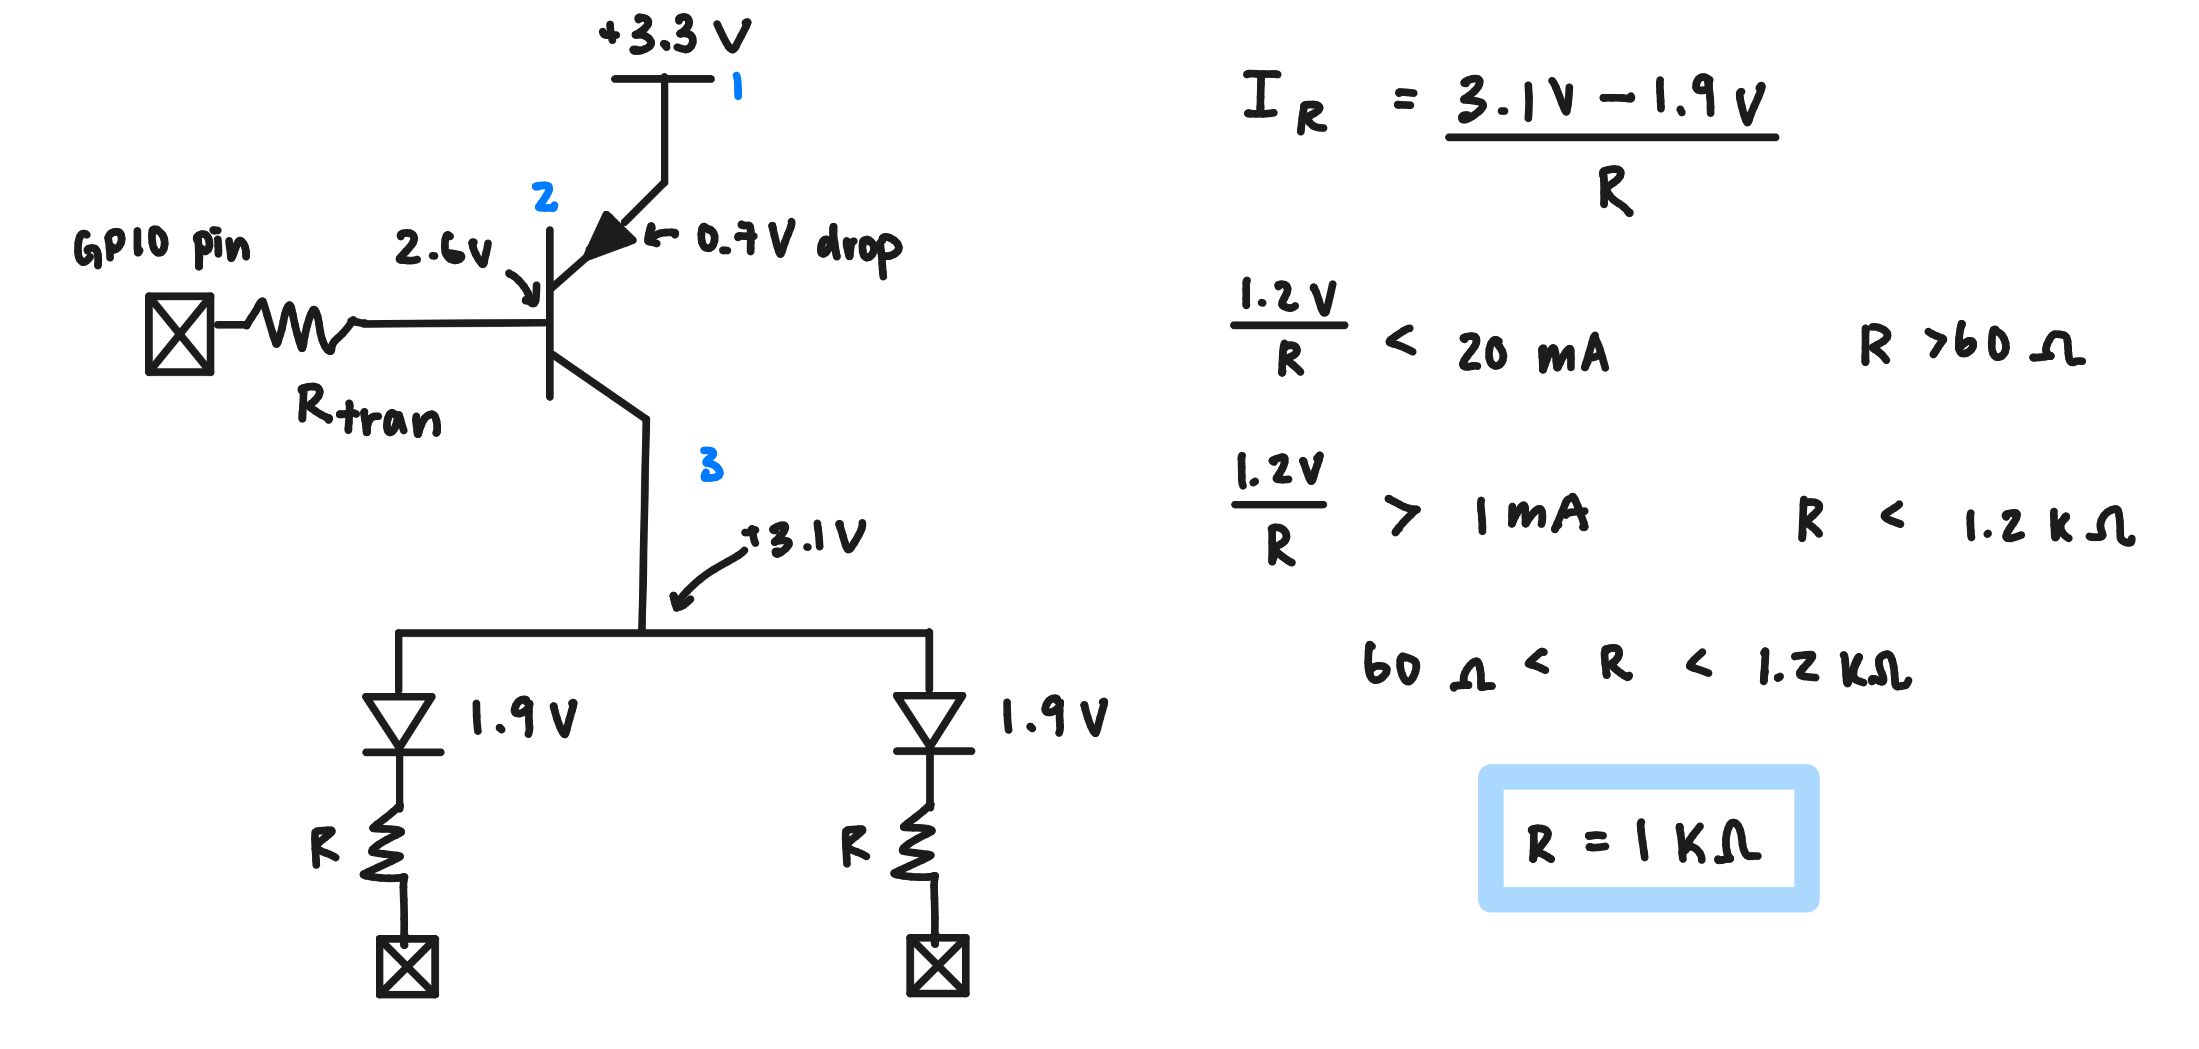 +3.3 V
1
2
GPIO pin
2.6v
0.7V drop
Rtran
3
+3.1V
1.9V
1.9V
R
R
I R = 3.1V - 1.9V
R
1.2V
R
< 20 mA
R >60 Ω
1.2V
R
> 1 mA
R < 1.2 KΩ
60 Ω < R < 1.2 KΩ
R = 1 KΩ